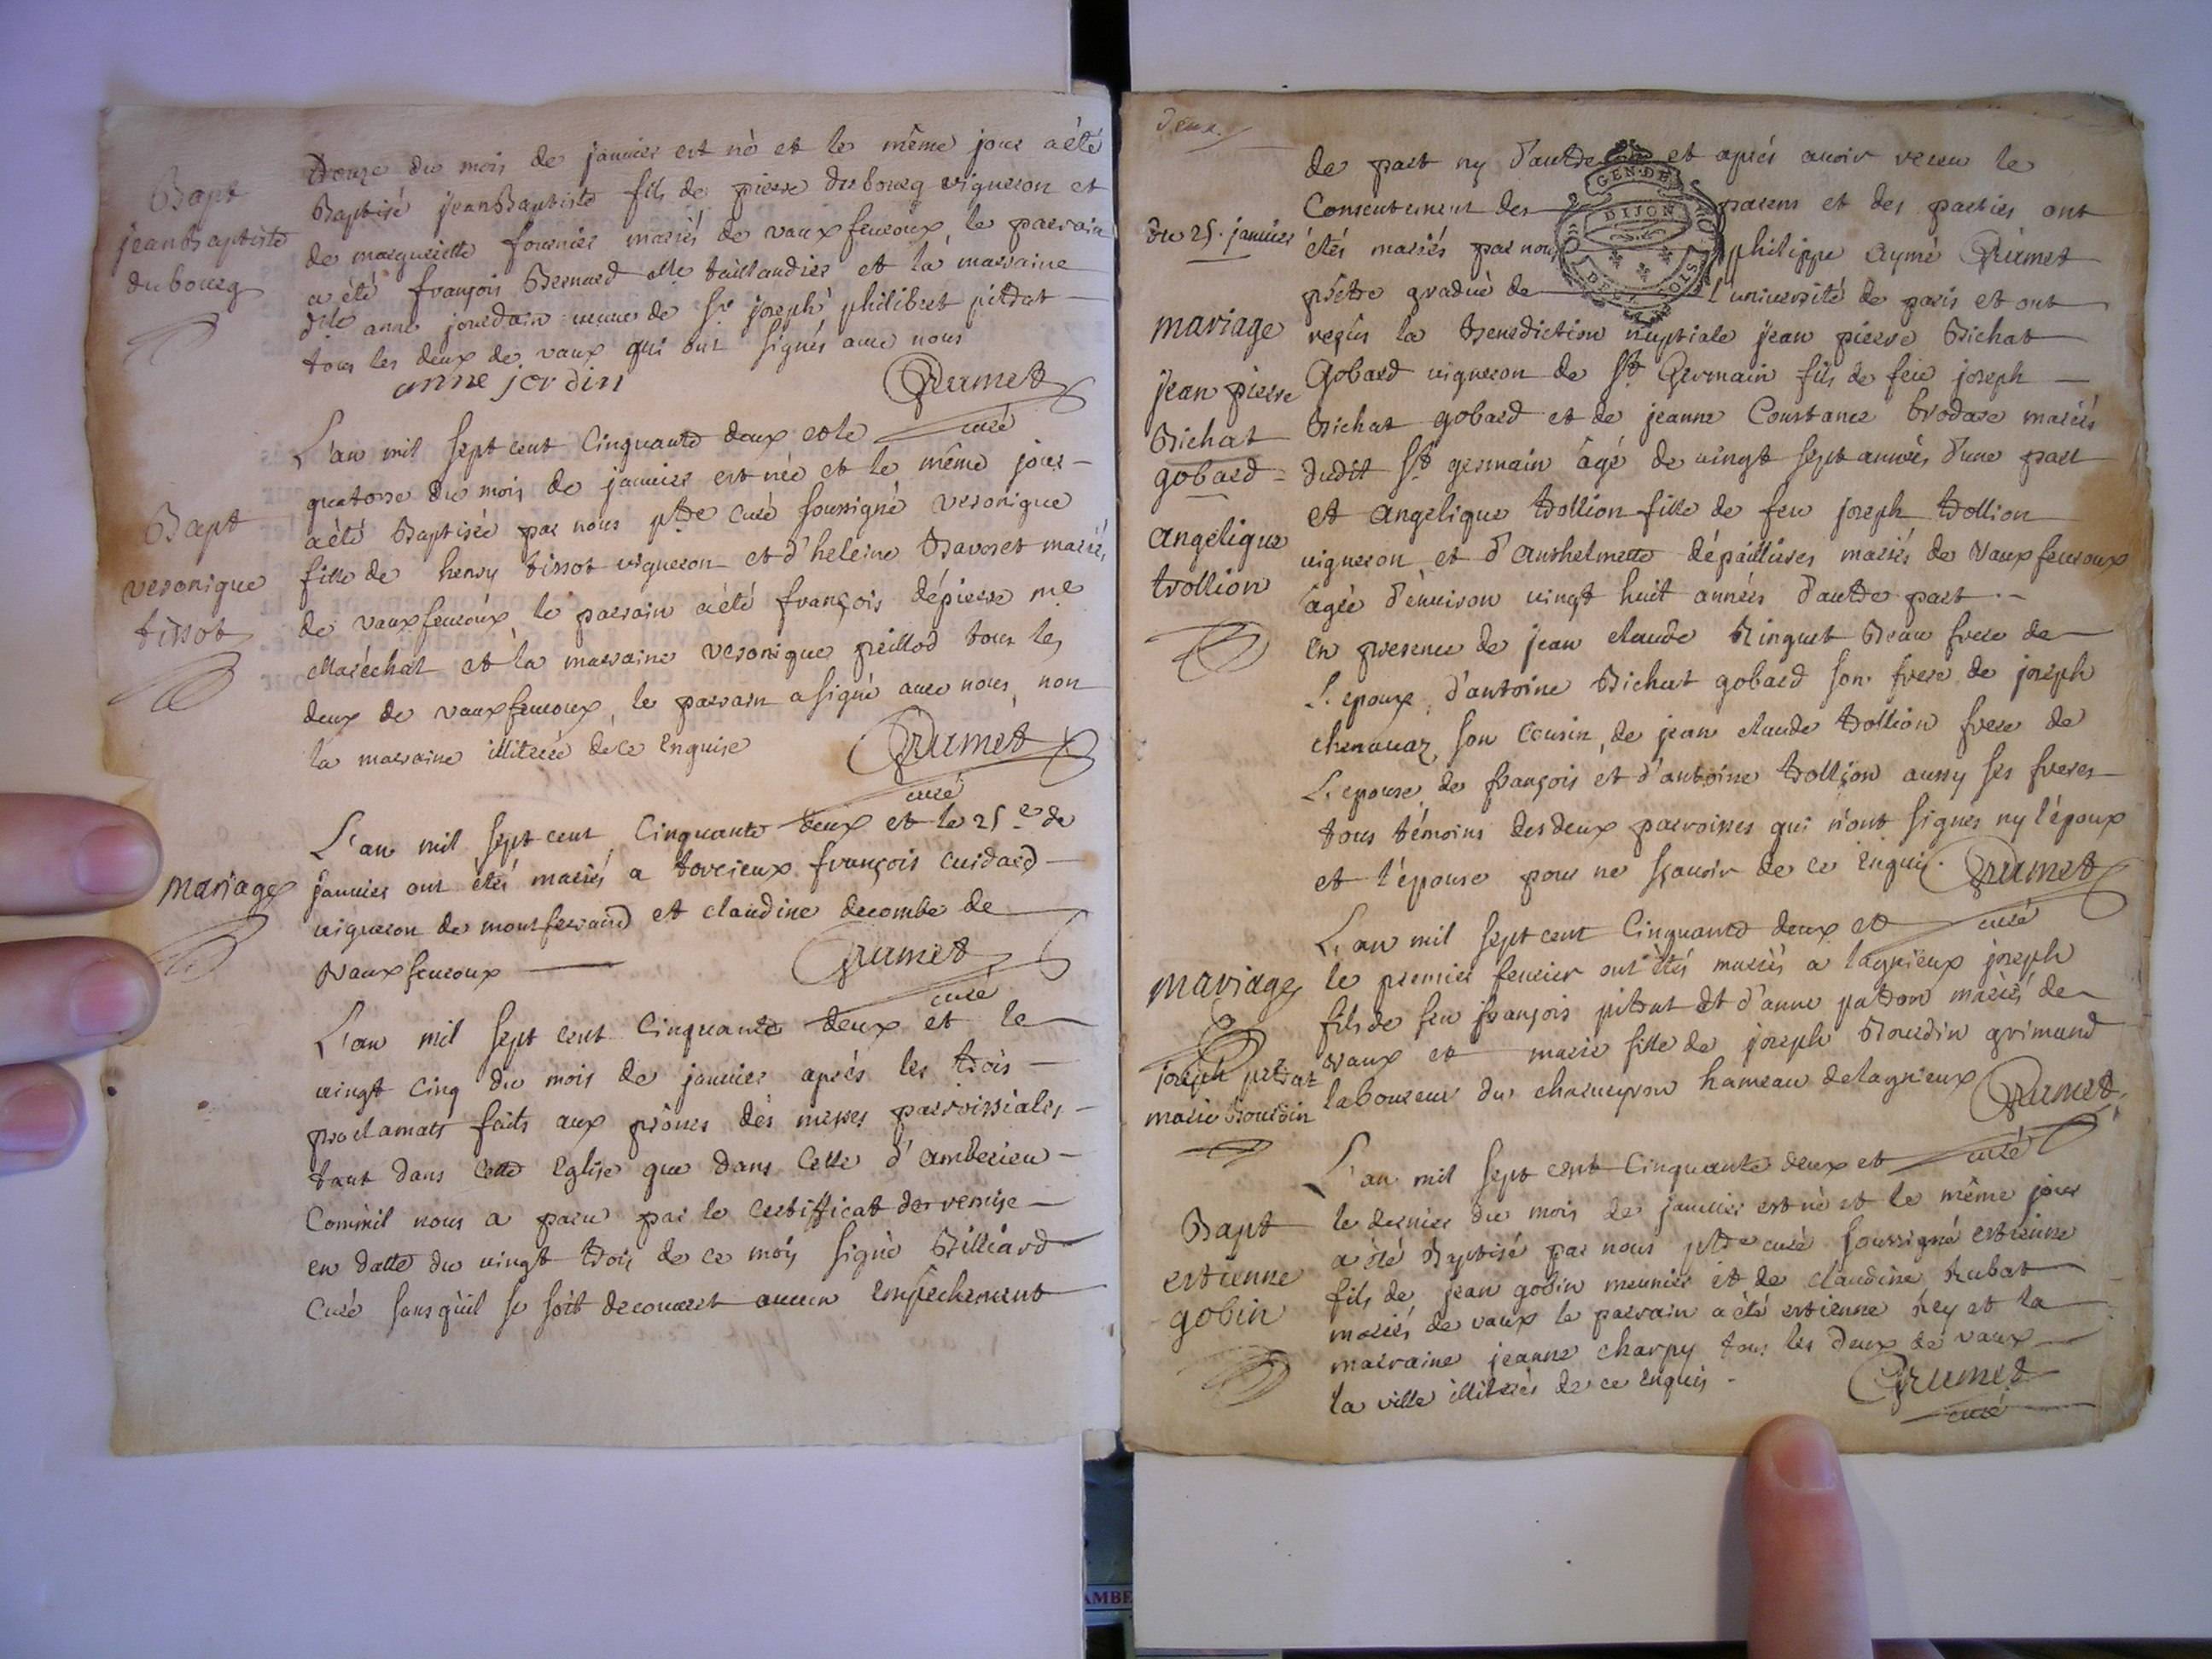 Bapt
jean Baptiste
du bourg
douze du mois de janvier est né et le même jour a été
Baptisé jean Baptiste fils de pierre du bourg vigneron et
de margueritte fournier mariés de vaux fevroux, le parrain
a été françois Bernard me taillandier et la marraine
dlle anne jourdain veuve de sr joseph philibert pitrat
tous les deux de vaux qui ont signés avec nous
anne jordin
Grumet
curé
Bapt
veronique
tissot
L'an mil sept cent cinquante deux et le
quatorze du mois de janvier est née et le même jour
a été Baptisée par nous ptre curé soussigné veronique
fille de henry tissot vigneron et d'heleine Bavoset mariés
de vaux fevroux le parrain a été françois dépierre me
Maréchal et la marraine veronique peillod tous les
deux de vaux fevroux, le parrain a signé avec nous, non
la marraine illiterée de ce enquise
Grumet
curé
mariage
L'an mil sept cent cinquante deux et le 25e de
janvier ont étés mariés a torcieux françois cuidard
vigneron de montferrand et claudine decombe de
vaux fevroux
Grumet
curé
L'an mil sept cent cinquante deux et le
vingt cinq du mois de janvier après les trois
proclamats faits aux prônes des messes parroissiales
tant dans cette Eglise que dans celle d'amberieu
comm'il nous a paru par le certifficat de remise
en datte du vingt trois de ce mois signé Billiard
curé sans qu'il se soit decouvert aucun empechement
deux
du 25. janvier
mariage
jean pierre
Bichat
gobard
angelique
trollion
de part ny d'autre et après avoir receu le
Consentement des parens et des parties ont
étés mariés par nous philippe aymé Grumet
prêtre gradué de l'université de paris et ont
reçus la Benediction nuptiale jean pierre Bichat
Gobard vigneron de St Germain fils de feu joseph
Bichat gobard et de jeanne Constance brodare mariés
dudit St germain âgé de vingt sept années d'une part
et angelique trollion fille de feu joseph trollion
vigneron et d'anthelmette dépaillieres mariés de vaux fevroux
âgée d'environ vingt huit années d'autre part
en presence de jean claude Ringuet Beau frere de
L'epoux, d'antoine Bichat gobard son frere, de joseph
chenavaz son cousin, de jean claude trollion frere de
L'epouse, de françois et d'antoine trollion aussy ses freres
tous témoins des deux parroisses qui n'ont signés ny l'époux
et l'épouse pour ne sçavoir de ce Enquis.
Grumet
curé
GEN. DE
DIJON
DEUX SOLS
mariage
joseph pitrat
marie Bourdin
L'an mil sept cent cinquante deux et
le premier fevrier ont étés mariés a lagnieux joseph
fils de feu françois pitrat et d'anne patron mariés de
vaux et marie fille de joseph Bourdin grimand
laboureur du charveyron hameau de lagnieux
Grumet
curé
Bapt
estienne
gobin
L'an mil sept cent cinquante deux et
le dernier du mois de janvier est né et le même jour
a été Baptisé par nous ptre curé soussigné estienne
fils de jean gobin meunier et de claudine Rubat
mariés de vaux le parrain a été estienne Rey et la
marraine jeanne charpy tous les deux de vaux
la ville illiterés de ce enquis
Grumet
curé
AMBE